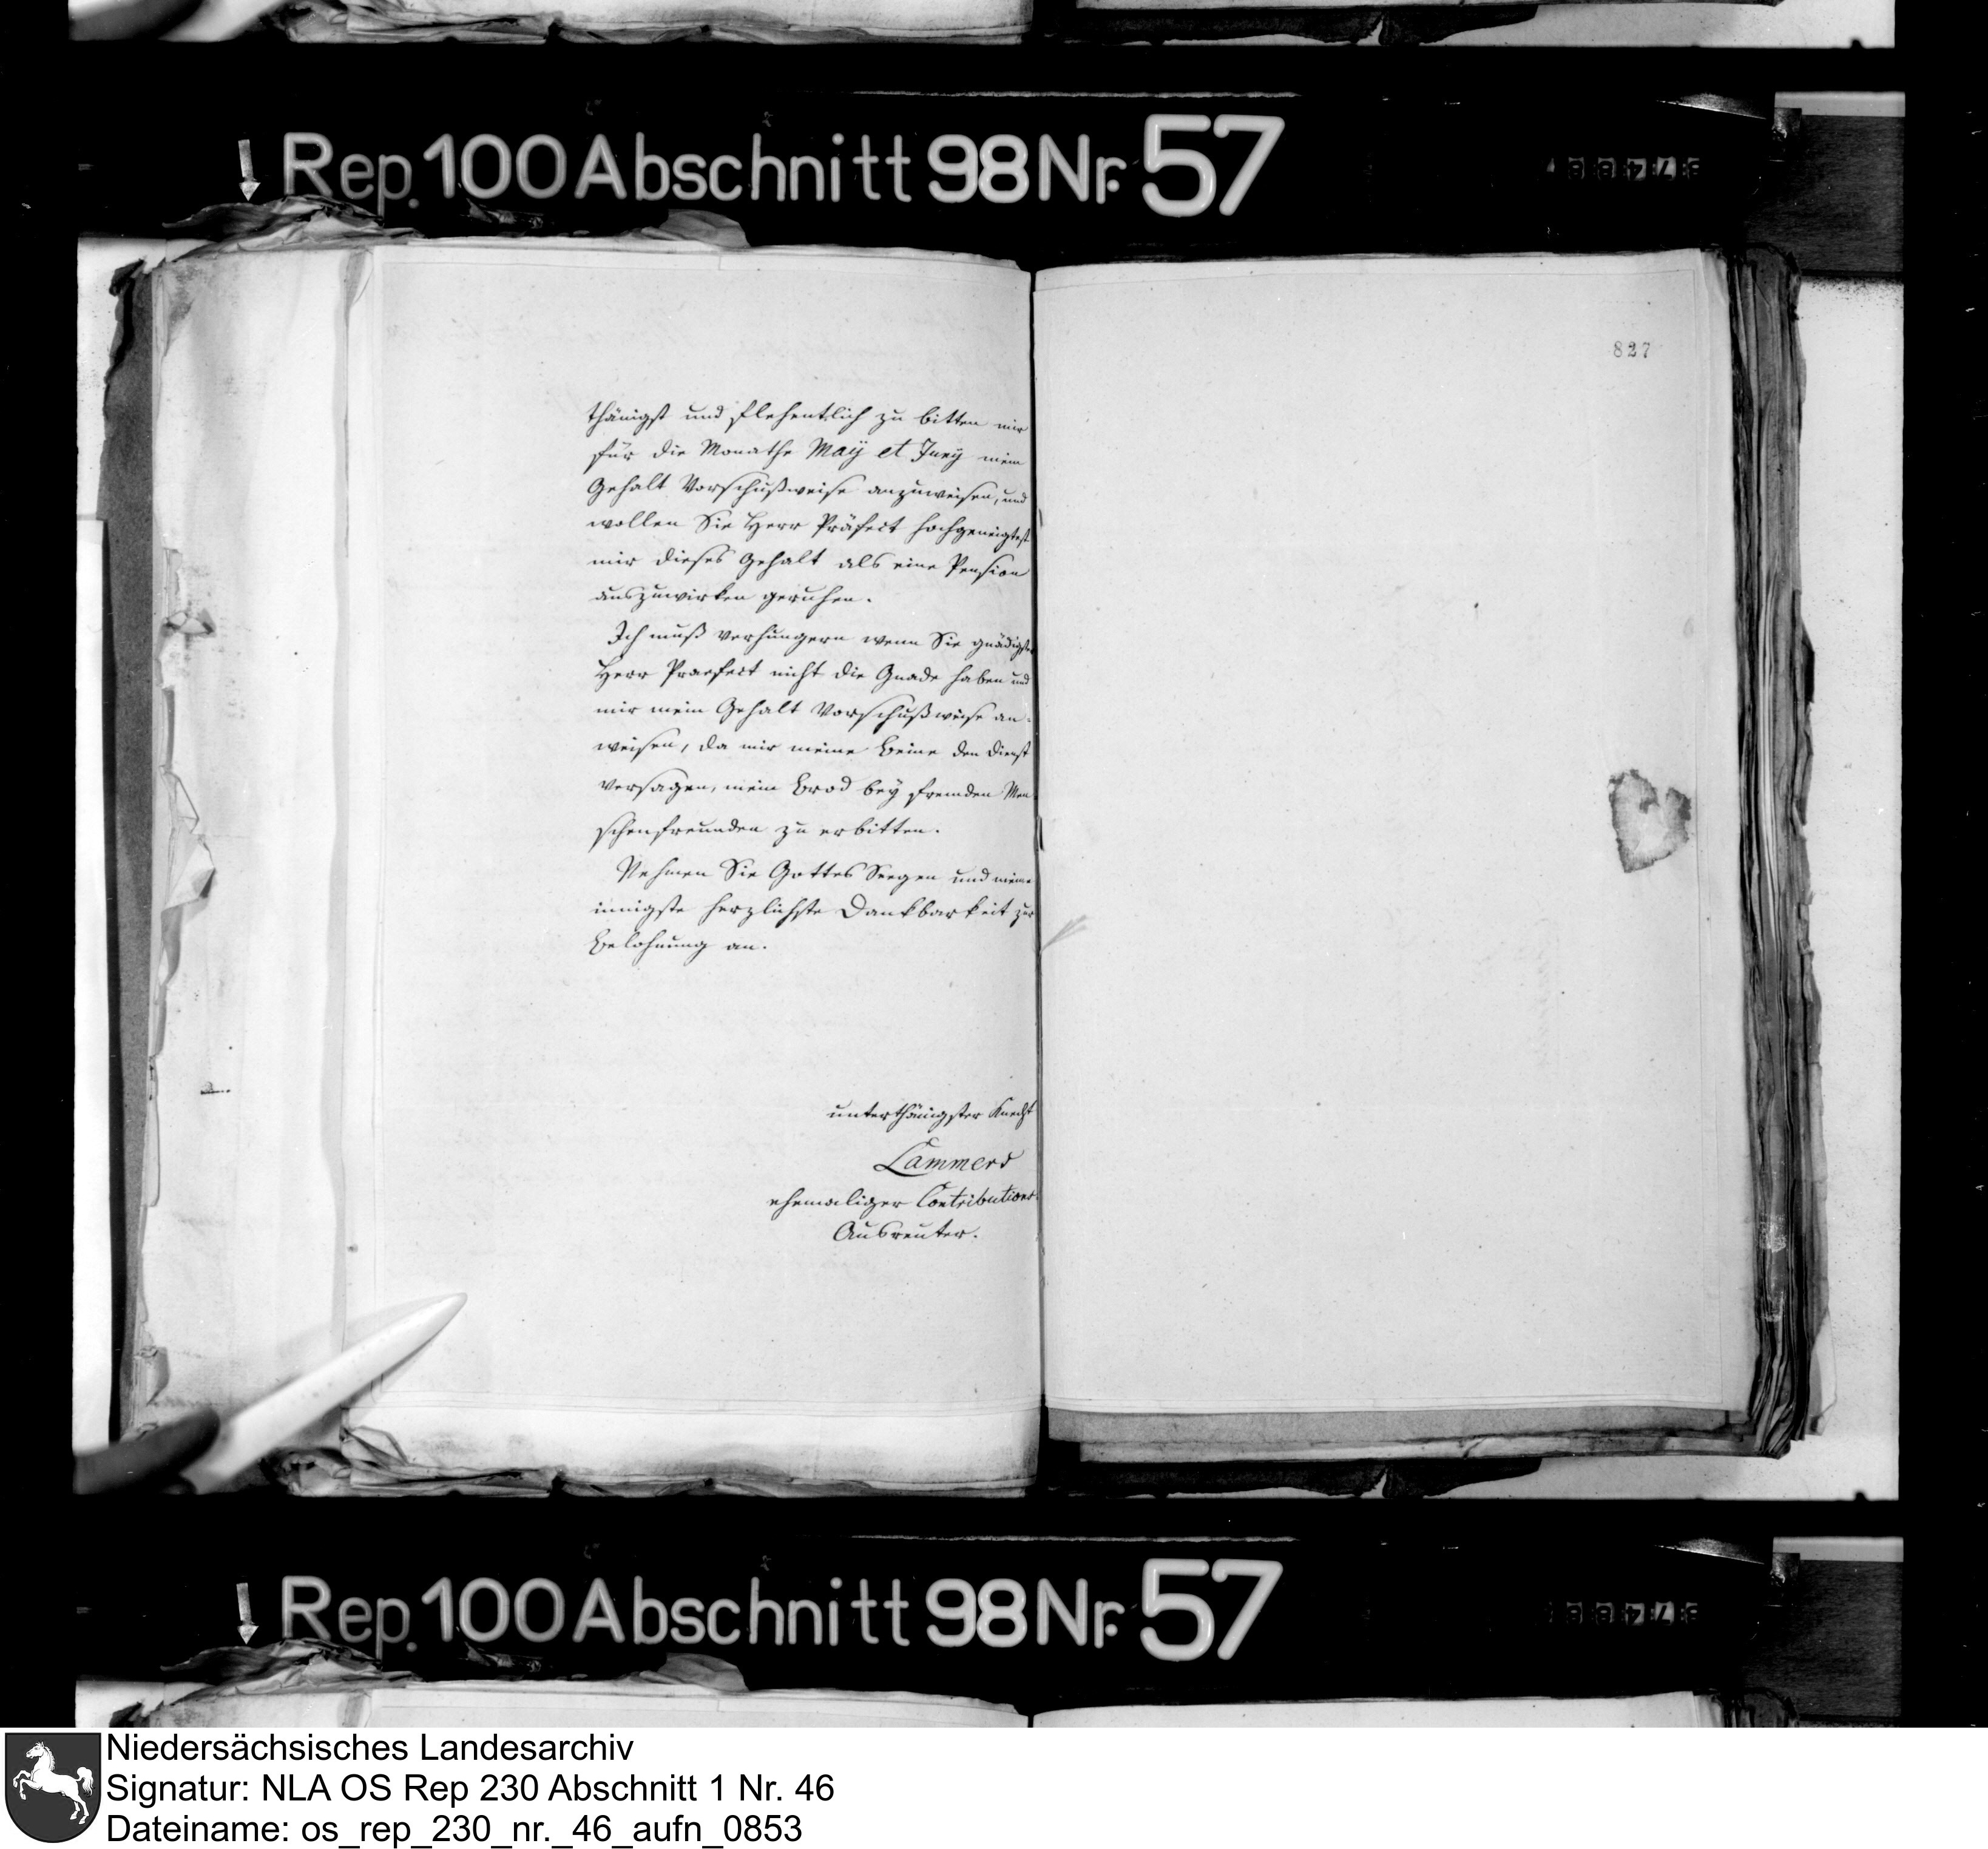 Rep. 100 Abschnitt 98 Nr. 57
827
thänigst und flehentlich zu bitten mir
für die Monathe Maÿ et Juny mein
Gehalt Vorschußweise anzuweisen, und
wollen Sie Herr Präfect hochgeneigtest
mir dieses Gehalt als eine Pension
auszuwirken geruhen.
Ich muß verhungern wenn Sie gnädigster
Herr Praefect nicht die Gnade haben und
mir mein Gehalt Vorschußweise an-
weisen, da mir meine Beine den Dienst
versagen, mein Brod beÿ fremden Men
schenfreunden zu erbitten.
Nehmen Sie Gottes Seegen und meine
innigste herzlichste Dankbarkeit zur
Belohnung an.
unterthänigster Knecht
Lammers
ehemaliger Contributions-
Ausreuter.
Rep. 100 Abschnitt 98 Nr. 57
Niedersächsisches Landesarchiv
Signatur: NLA OS Rep 230 Abschnitt 1 Nr. 46
Dateiname: os_rep_230_nr._46_aufn_0853